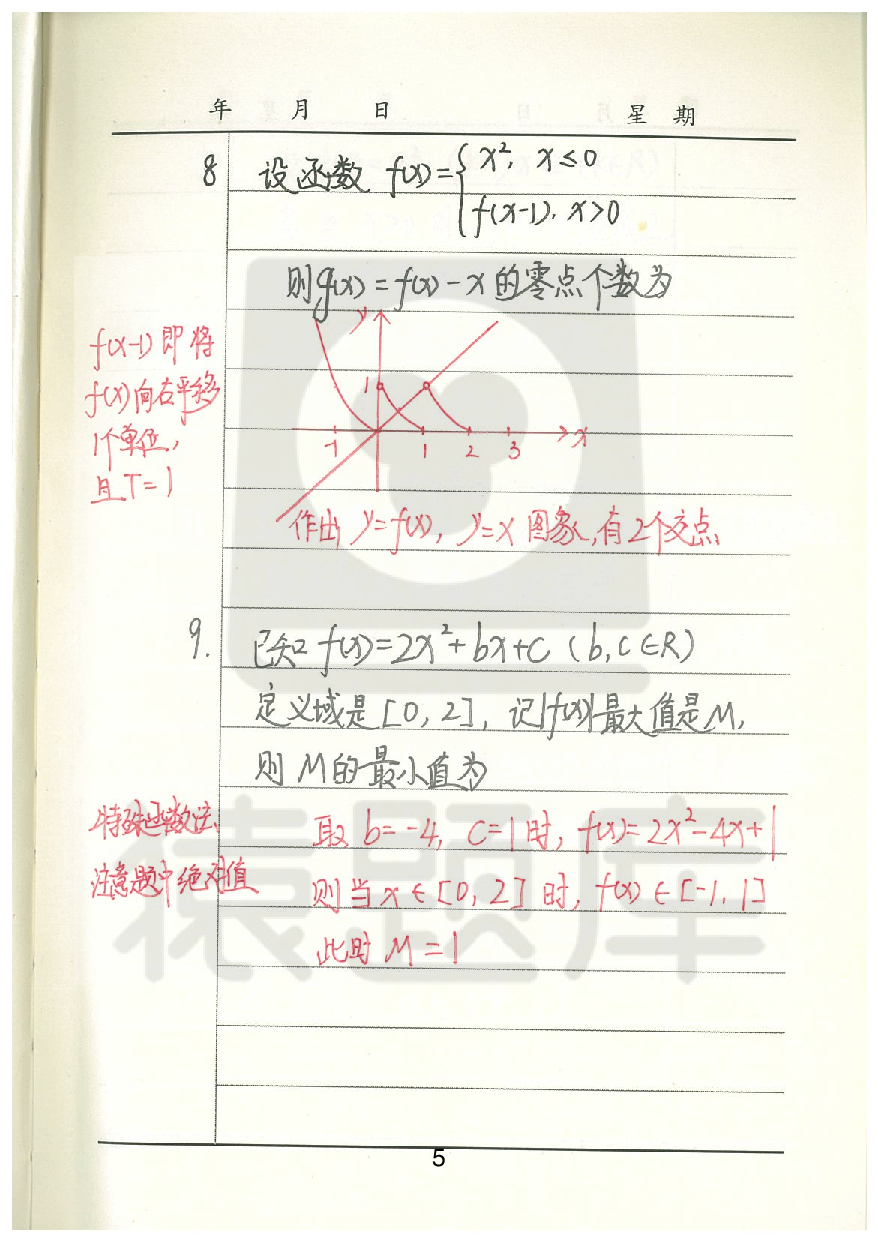 年 月 日 星 期
8 设函数 f(x)={x², x≤0
f(x-1), x>0
则g(x)=f(x)-x的零点个数为
f(x-1)即将
f(x)向右平移
1个单位,
且T=1
y
1
-1 1 2 3 x
作出 y=f(x), y=x 图象,有2个交点
9. 已知 f(x)=2x²+bx+c (b,c∈R)
定义域是[0,2], 记|f(x)|最大值是M,
则 M的最小值为
特殊函数法,
注意题中绝对值
取 b=-4, c=1时, f(x)=2x²-4x+1
则当 x∈[0,2]时, f(x)∈[-1,1]
此时 M=1
猿题库
5